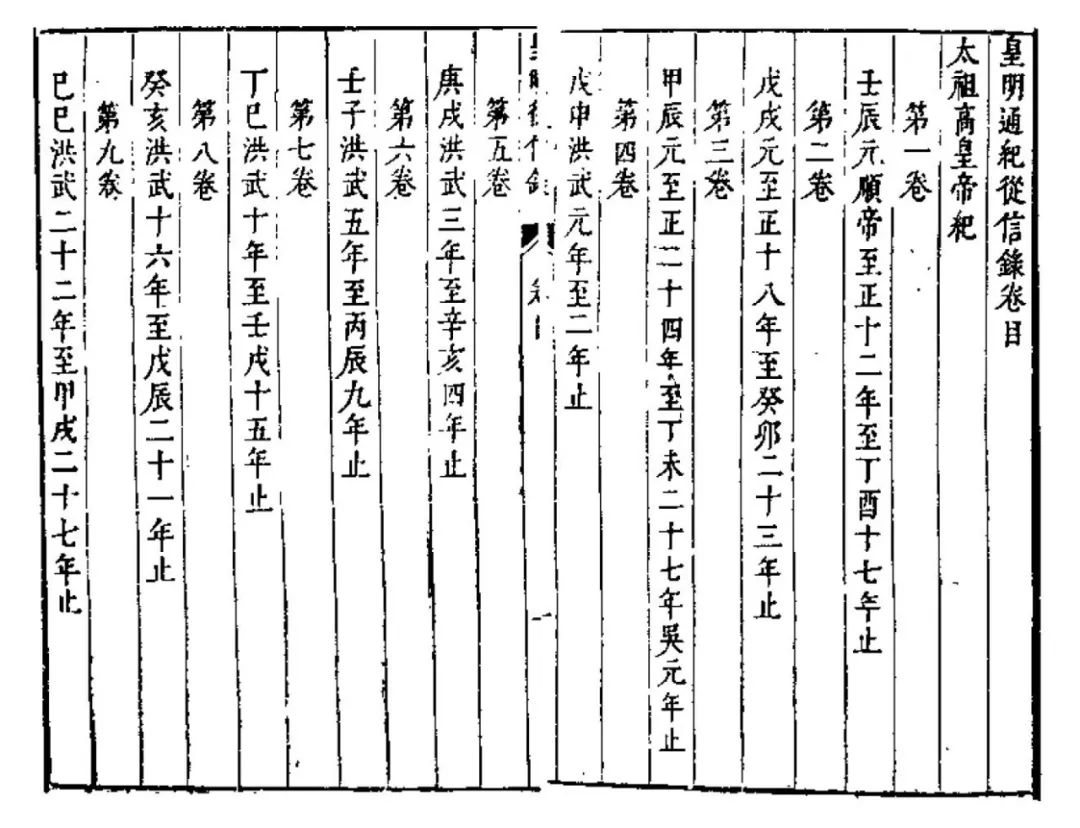 皇明通紀從信錄卷目
太祖高皇帝紀
第一卷
壬辰元順帝至正十二年至丁酉十七年止
第二卷
戊戌元至正十八年至癸卯二十三年止
第三卷
甲辰元至正二十四年至丁未二十七年吳元年止
第四卷
戊申洪武元年至二年止
一
第五卷
庚戌洪武三年至辛亥四年止
第六卷
壬子洪武五年至丙辰九年止
第七卷
丁巳洪武十年至壬戌十五年止
第八卷
癸亥洪武十六年至戊辰二十一年止
第九卷
己巳洪武二十二年至甲戌二十七年止